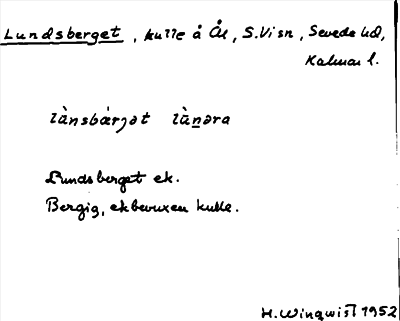 Lundsberget, kulle å Ål, S.Vi sn, Sevede hd,
Kalmar l.
lànsbárjət lànəra
Lundsberget ek.
Bergig, ekbevuxen kulle.
H. Winqwist 1952